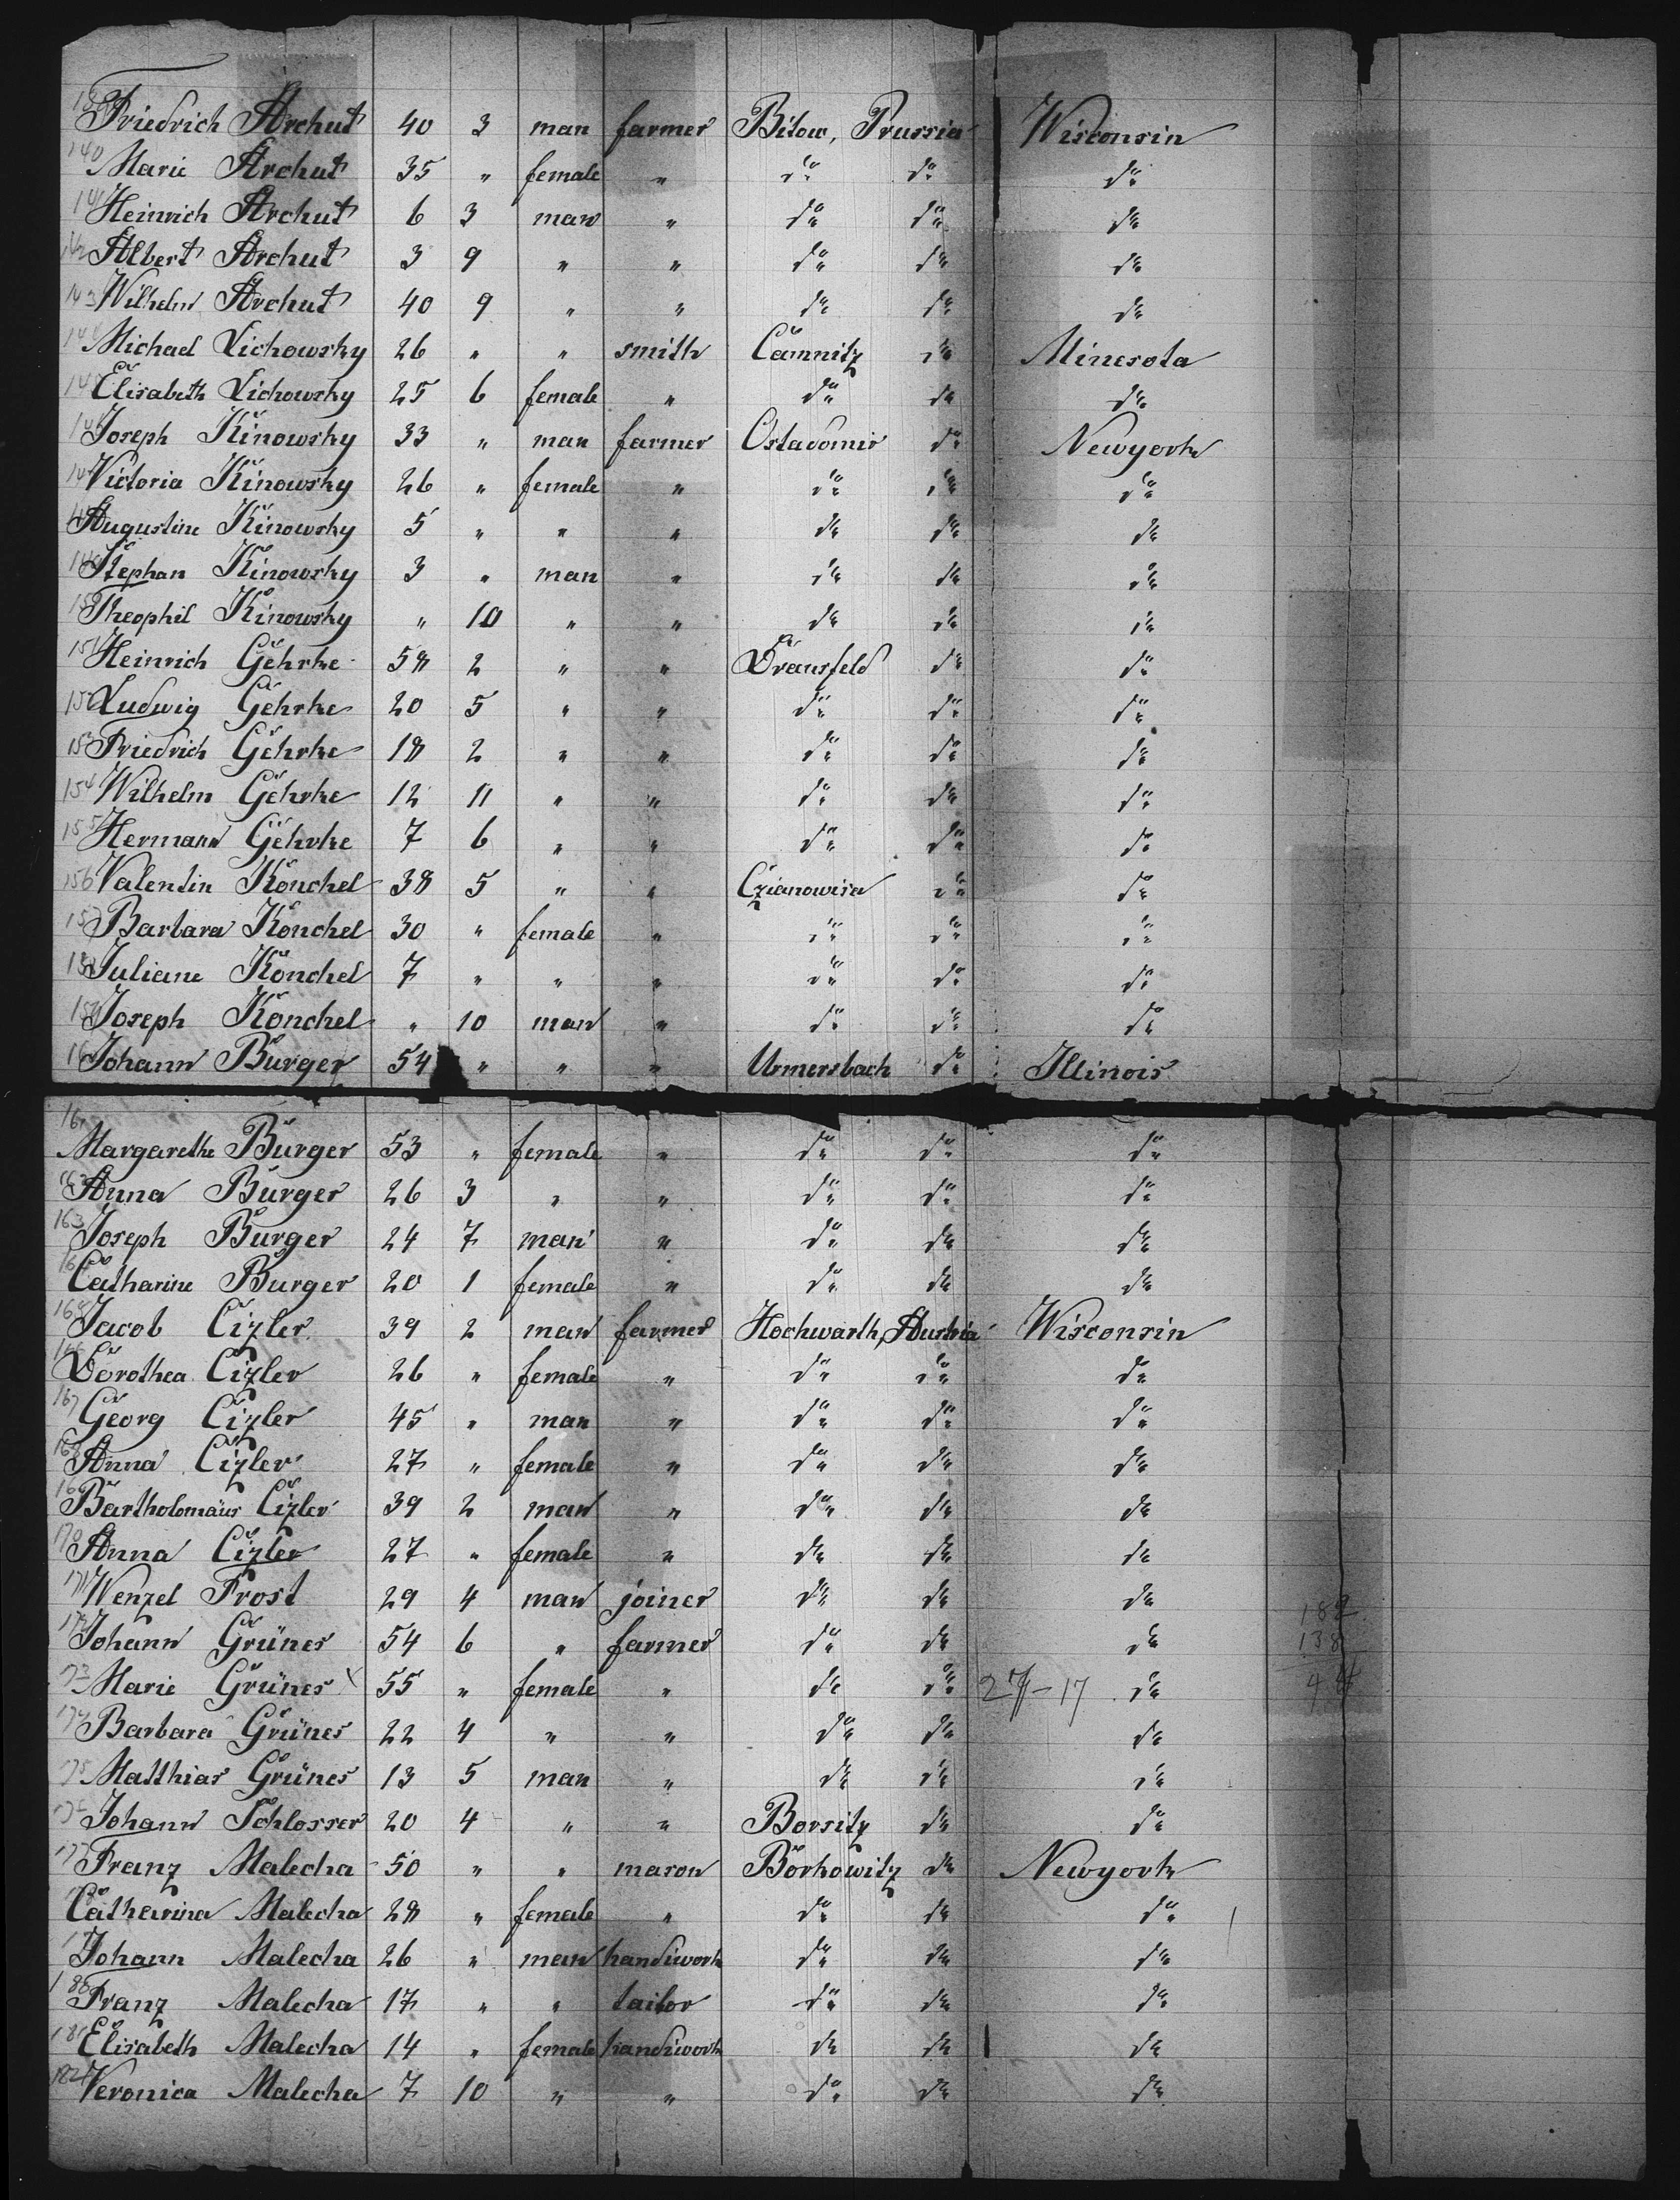 139 Friedrich Archut 40 3 man farmer Bitow, Prussia Wisconsin
140 Marie Archut 35 " female " do do do
141 Heinrich Archut 6 3 man " do do do
142 Albert Archut 3 9 " " do do do
143 Wilhelm Archut 40 9 " " do do do
144 Michael Lichowsky 26 " " smith Camnitz do Minesota
145 Elisabeth Lichowsky 25 6 female " do do do
146 Joseph Kinowsky 33 " man farmer Ostadomir do Newyork
147 Victoria Kinowsky 26 " female " do do do
148 Augustine Kinowsky 5 " " " do do do
149 Stephan Kinowsky 3 " man " do do do
150 Theophil Kinowsky " 10 " " do do do
151 Heinrich Gehrke 58 2 " " Dransfeld do do
152 Ludwig Gehrke 20 5 " " do do do
153 Friedrich Gehrke 18 2 " " do do do
154 Wilhelm Gehrke 12 11 " " do do do
155 Hermann Gehrke 7 6 " " do do do
156 Valentin Konchel 38 5 " " Czianowisa do do
157 Barbara Konchel 30 " female " do do do
158 Juliane Konchel 7 " " " do do do
159 Joseph Konchel " 10 man " do do do
160 Johann Burger 54 " " " Urmersbach do Illinois
161 Margarethe Burger 53 " female " do do do
162 Anna Burger 26 3 " " do do do
163 Joseph Burger 24 7 man " do do do
164 Catharine Burger 20 1 female " do do do
165 Jacob Cizler 39 2 man farmer Hochwarth, Austria Wisconsin
166 Dorothea Cizler 26 " female " do do do
167 Georg Cizler 45 " man " do do do
168 Anna Cizler 27 " female " do do do
169 Bartholomäus Cizler 39 2 man " do do do
170 Anna Cizler 27 " female " do do do
171 Wenzel Frost 29 4 man joiner do do do 182
172 Johann Grünes 54 6 " farmer do do do 138
173 Marie Grünes x 55 " female " do do 27-17 do 44
174 Barbara Grünes 22 4 " " do do do
175 Matthias Grünes 13 5 man " do do do
176 Johann Schlosser 20 4 " " Borsitz do do
177 Franz Malecha 50 " " mason Borkowitz do Newyork
178 Catharina Malecha 28 " female " do do do
179 Johann Malecha 26 " man handiwork do do do
180 Franz Malecha 17 " " tailor do do do
181 Elisabeth Malecha 14 " female handiwork do do do
182 Veronica Malecha 7 10 " " do do do